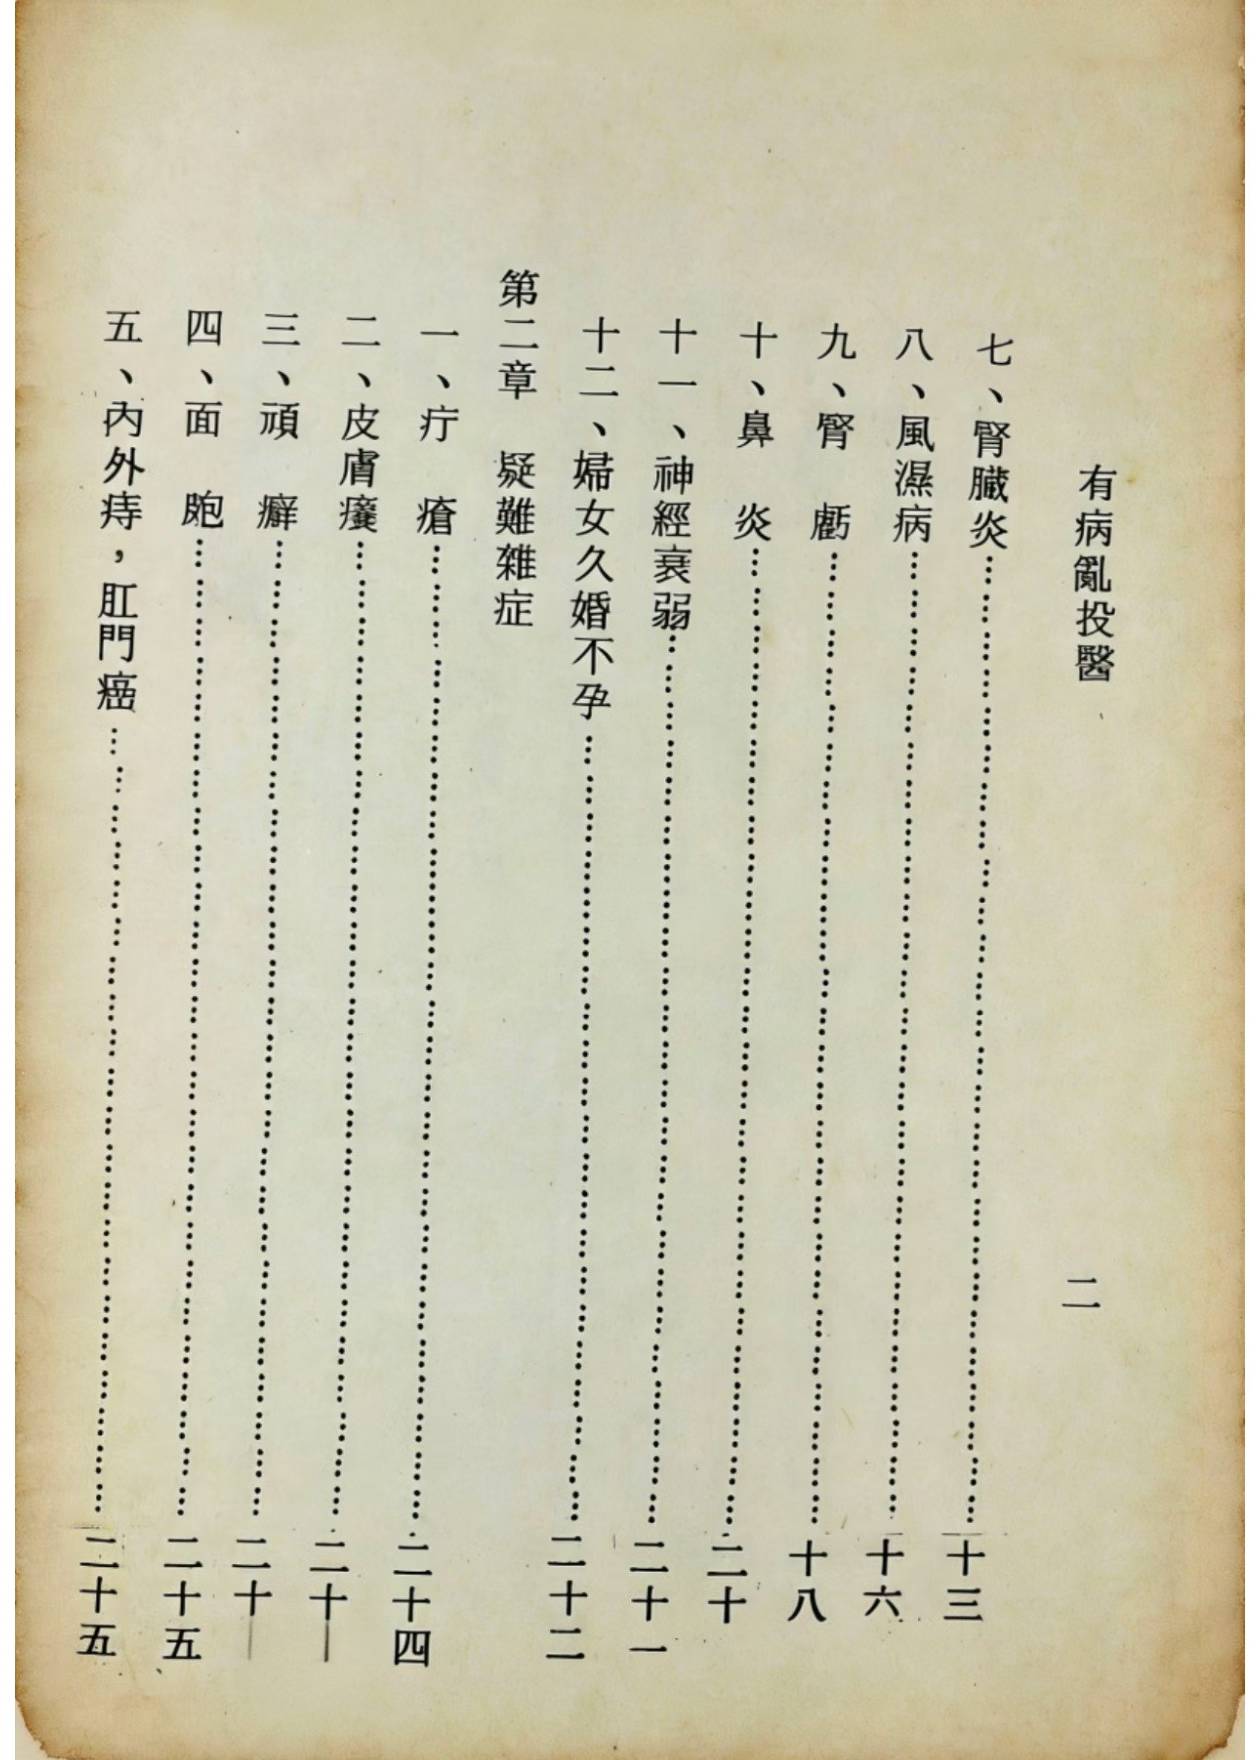 有病亂投醫 二
七、腎臟炎……十三
八、風濕病……十六
九、腎 虧……十八
十、鼻 炎……二十
十一、神經衰弱……二十一
十二、婦女久婚不孕……二十二
第二章 疑難雜症
一、疔 瘡……二十四
二、皮膚癢……二十｜
三、頑 癬……二十｜
四、面 皰……二十五
五、內外痔，肛門癌……二十五